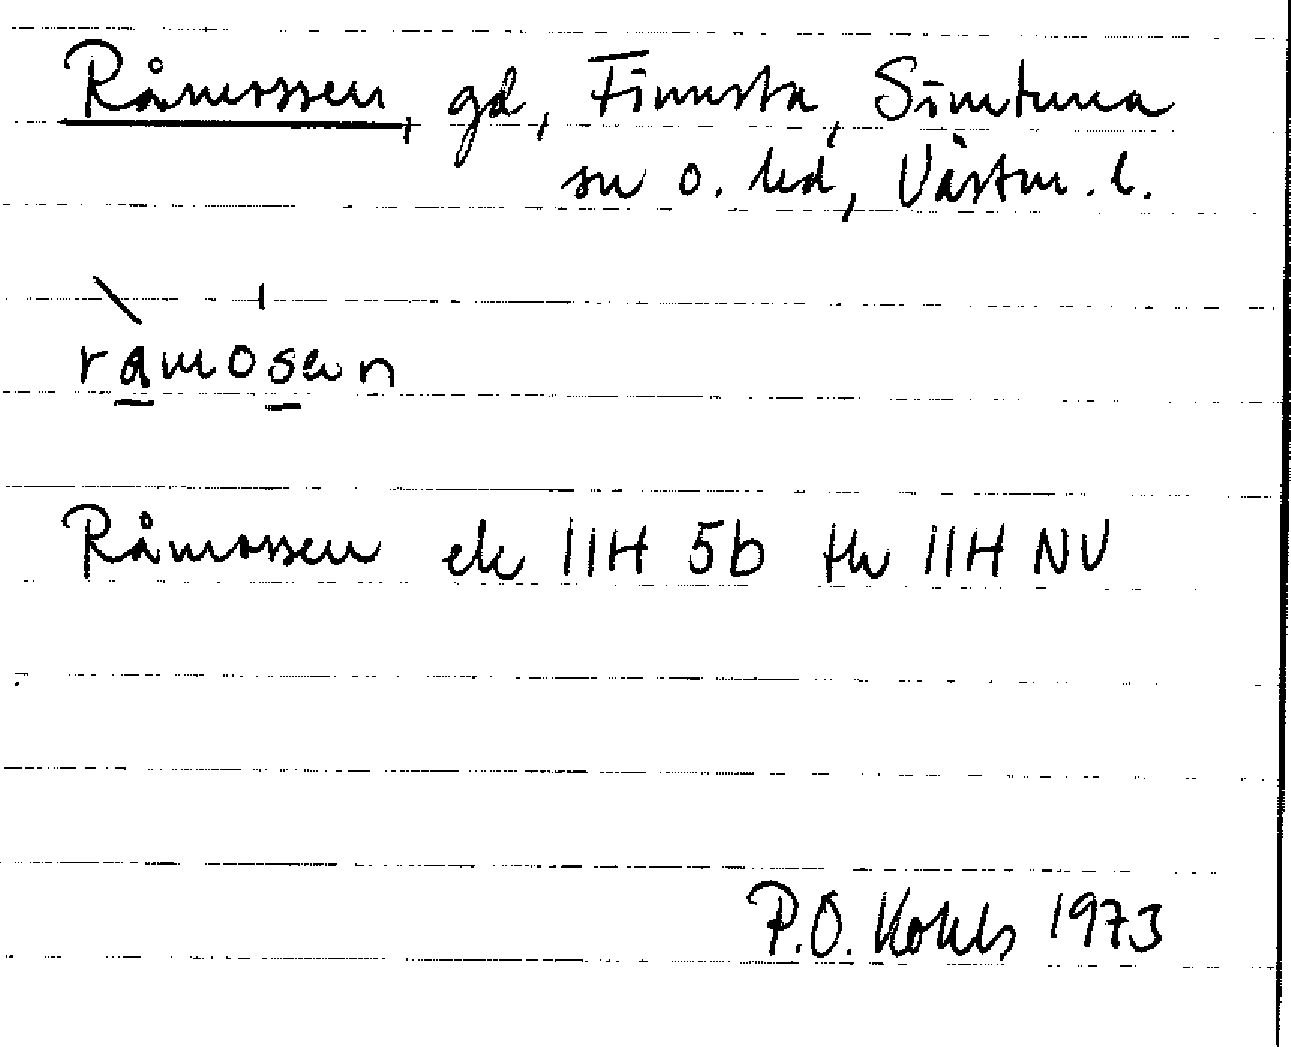 Råmossen, gd, Finnsta, Simtuna
sn o. hd, Västm. l.
råmosen
Råmossen ek 11H 5b tk 11H NV
P.O. Kohls 1973